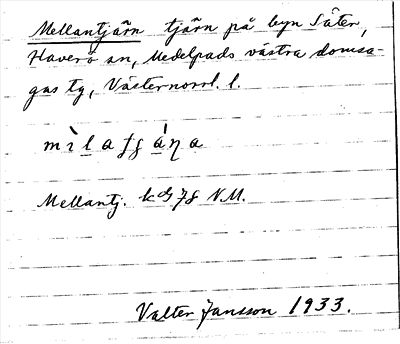 Mellantjärn tjärn på byn Säter,
Haverö sn, Medelpads västra domsa-
gas tg, Västernorrl. l.
Mellantj. N.M.
Valter Jansson 1933.